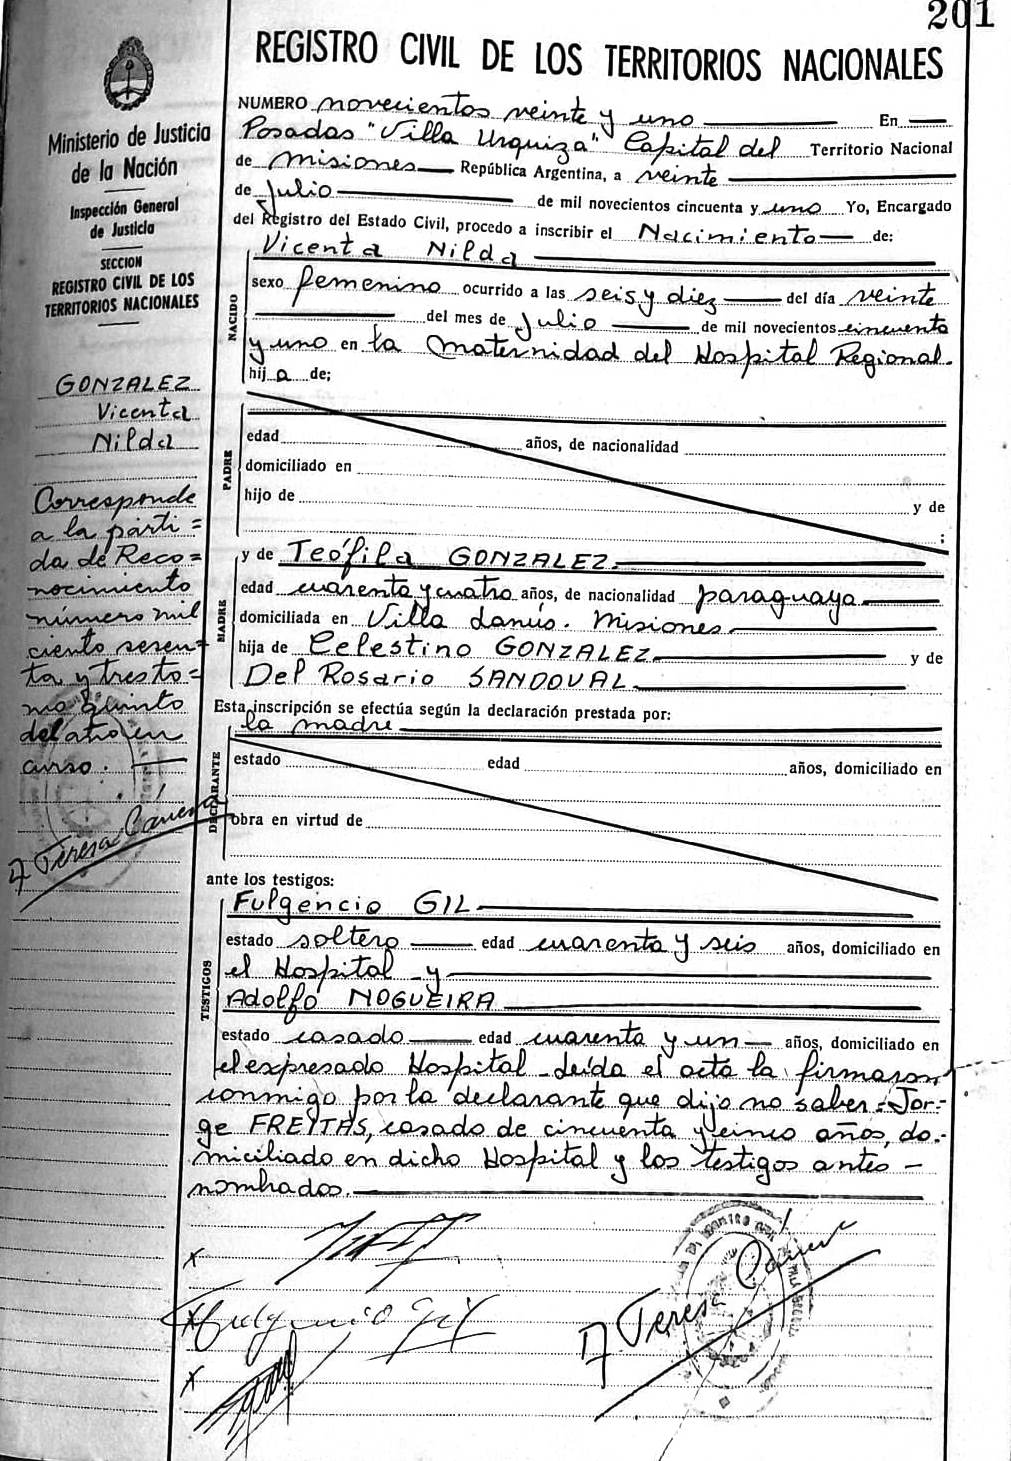 201
REGISTRO CIVIL DE LOS TERRITORIOS NACIONALES
Ministerio de Justicia
de la Nación
Inspección General
de Justicia
SECCION
REGISTRO CIVIL DE LOS
TERRITORIOS NACIONALES
GONZALEZ
Vicenta
Nilda
Corresponde
a la parti=
da de Reco=
nocimiento
número mil
ciento sesen=
ta y tres to=
mo quinto
del año en
curso.
Teresa
NUMERO novecientos veinte y uno En
Posadas "Villa Urquiza" Capital del Territorio Nacional
de Misiones República Argentina, a veinte
de Julio de mil novecientos cincuenta y uno Yo, Encargado
del Registro del Estado Civil, procedo a inscribir el Nacimiento de:
Vicenta Nilda
NACIDO
sexo femenino ocurrido a las seis y diez del día veinte
del mes de Julio de mil novecientos cincuenta
y uno en la Maternidad del Hospital Regional.
hija de;
PADRE
edad años, de nacionalidad
domiciliado en
hijo de y de
;
y de Teófila GONZALEZ.
MADRE
edad cuarenta y cuatro años, de nacionalidad paraguaya.
domiciliada en Villa Lanús. Misiones.
hija de Celestino GONZALEZ. y de
Del Rosario SANDOVAL.
Esta inscripción se efectúa según la declaración prestada por:
la madre
DECLARANTE
estado edad años, domiciliado en
obra en virtud de
ante los testigos:
Fulgencio GIL.
TESTIGOS
estado soltero edad cuarenta y seis años, domiciliado en
el Hospital y
Adolfo NOGUEIRA
estado casado edad cuarenta y un años, domiciliado en
el expresado Hospital. Leída el acta la firmaron
conmigo por la declarante que dijo no saber: Jor-
ge FREITAS, casado de cincuenta y cinco años, do-
miciliado en dicho Hospital y los testigos antes
nombrados.
x
x Fulgencio Gil
x
Teresa